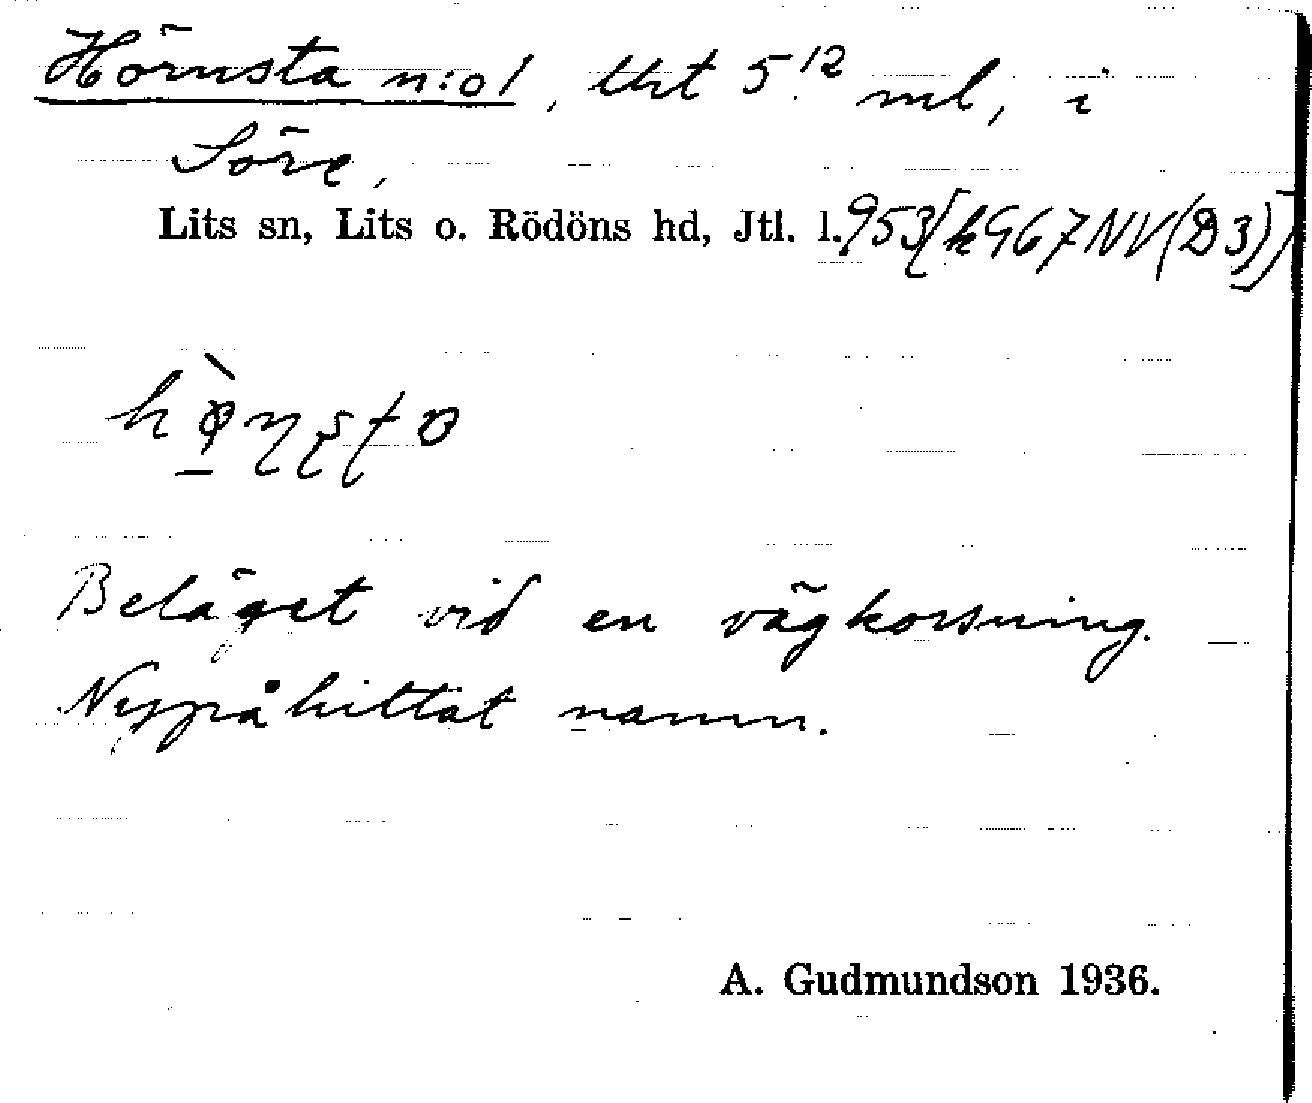 Hörnsta n:o 1, tht 5¹² ml, i
Söre,
Lits sn, Lits o. Rödöns hd, Jtl. l. 953[k967NV(D3)]
Beläget vid en vägkorsning.
Nypåhittat namn.
A. Gudmundson 1936.